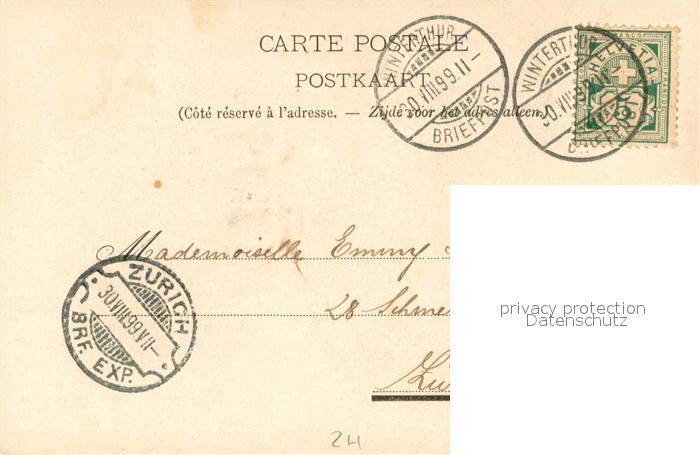 CARTE POSTALE
POSTKAART
(Côté réservé à l'adresse. — Zijde voor het adres alleen.)
WINTERTHUR
30.VIII.99.11–
BRIEFPOST
WINTERTHUR
30.VIII.99.11–
BRIEFPOST
HELVETIA
FRANCO
5
Mademoiselle Emmy
28
ZÜRICH
30.VIII.99.VII–
BRF. EXP.
24
privacy protection
Datenschutz